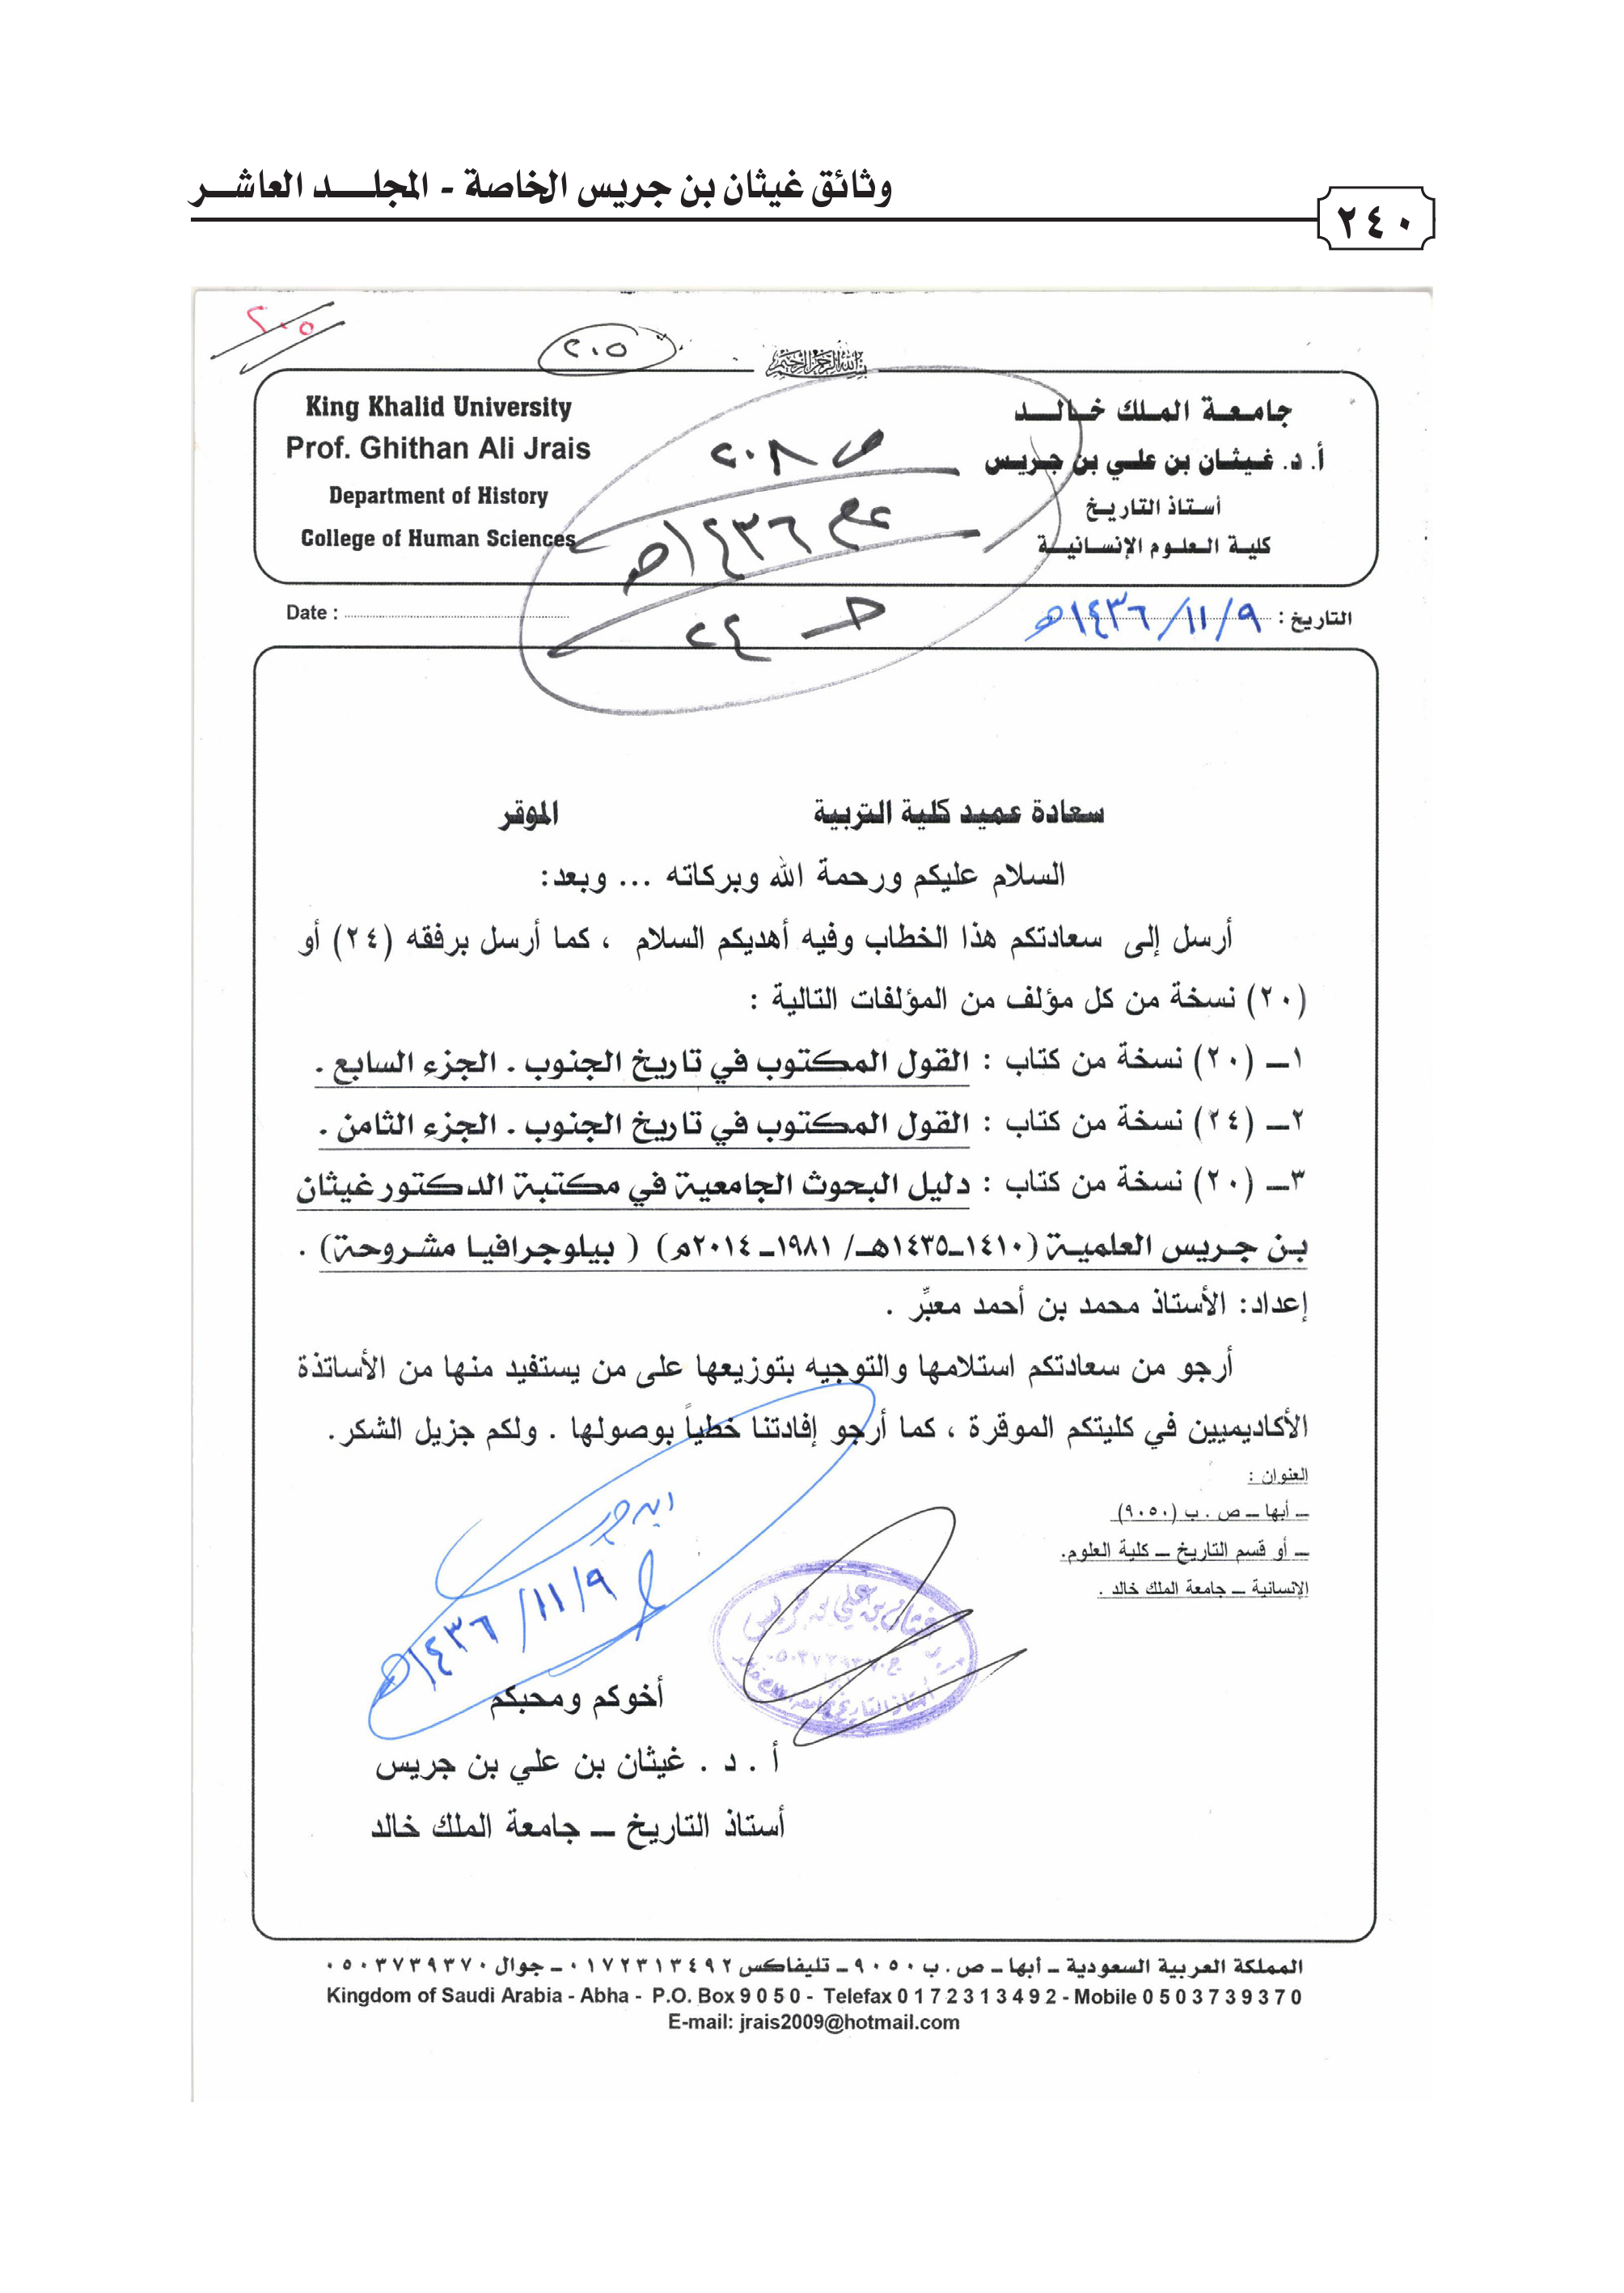 وثائق غيثان بن جريس الخاصة - المجلـــد العاشـــر
٢٤٠
٢٠٥
٢٠٥
بسم الله الرحمن الرحيم
جامعـة الملـك خـالــد
أ. د. غـيـثـان بن علـي بن جـريـس
أسـتـاذ التاريـخ
كليـة العـلـوم الإنـسـانيــة
King Khalid University
Prof. Ghithan Ali Jrais
Department of History
College of Human Sciences
ص ٢٠٨
١٤٣٦هـ
٢٤
التاريخ : ٩/ ١١/ ١٤٣٦هـ
Date :
سعادة عميد كلية التربية الموقر
السلام عليكم ورحمة الله وبركاته ... وبعد:
أرسل إلى سعادتكم هذا الخطاب وفيه أهديكم السلام ، كما أرسل برفقه (٢٤) أو
(٢٠) نسخة من كل مؤلف من المؤلفات التالية :
١ــ (٢٠) نسخة من كتاب : القول المكتوب في تاريخ الجنوب . الجزء السابع .
٢ــ (٢٤) نسخة من كتاب : القول المكتوب في تاريخ الجنوب . الجزء الثامن .
٣ــ (٢٠) نسخة من كتاب : دليل البحوث الجامعية في مكتبة الدكتور غيثان
بـن جـريس العلميـة (١٤١٠ــ١٤٣٥هـ/ ١٩٨١ــ٢٠١٤م) ( بيلوجرافيـا مشـروحة) .
إعداد: الأستاذ محمد بن أحمد معبِّر .
أرجو من سعادتكم استلامها والتوجيه بتوزيعها على من يستفيد منها من الأساتذة
الأكاديميين في كليتكم الموقرة ، كما أرجو إفادتنا خطياً بوصولها . ولكم جزيل الشكر.
العنوان :
ــ أبها ــ ص . ب (٩٠٥٠)
ــ أو قسم التاريخ ــ كلية العلوم.
الإنسانية ــ جامعة الملك خالد .
ابن جريس
٩/ ١١/ ١٤٣٦هـ
غيثان بن علي بن جريس
أخوكم ومحبكم
أ . د . غيثان بن علي بن جريس
أستاذ التاريخ ــ جامعة الملك خالد
المملكة العربية السعودية ـ أبها ـ ص . ب ٩٠٥٠ ـ تليفاكس ٠١٧٢٣١٣٤٩٢ ـ جوال ٠٥٠٣٧٣٩٣٧٠
Kingdom of Saudi Arabia - Abha - P.O. Box 9 0 5 0 - Telefax 0 1 7 2 3 1 3 4 9 2 - Mobile 0 5 0 3 7 3 9 3 7 0
E-mail: jrais2009@hotmail.com